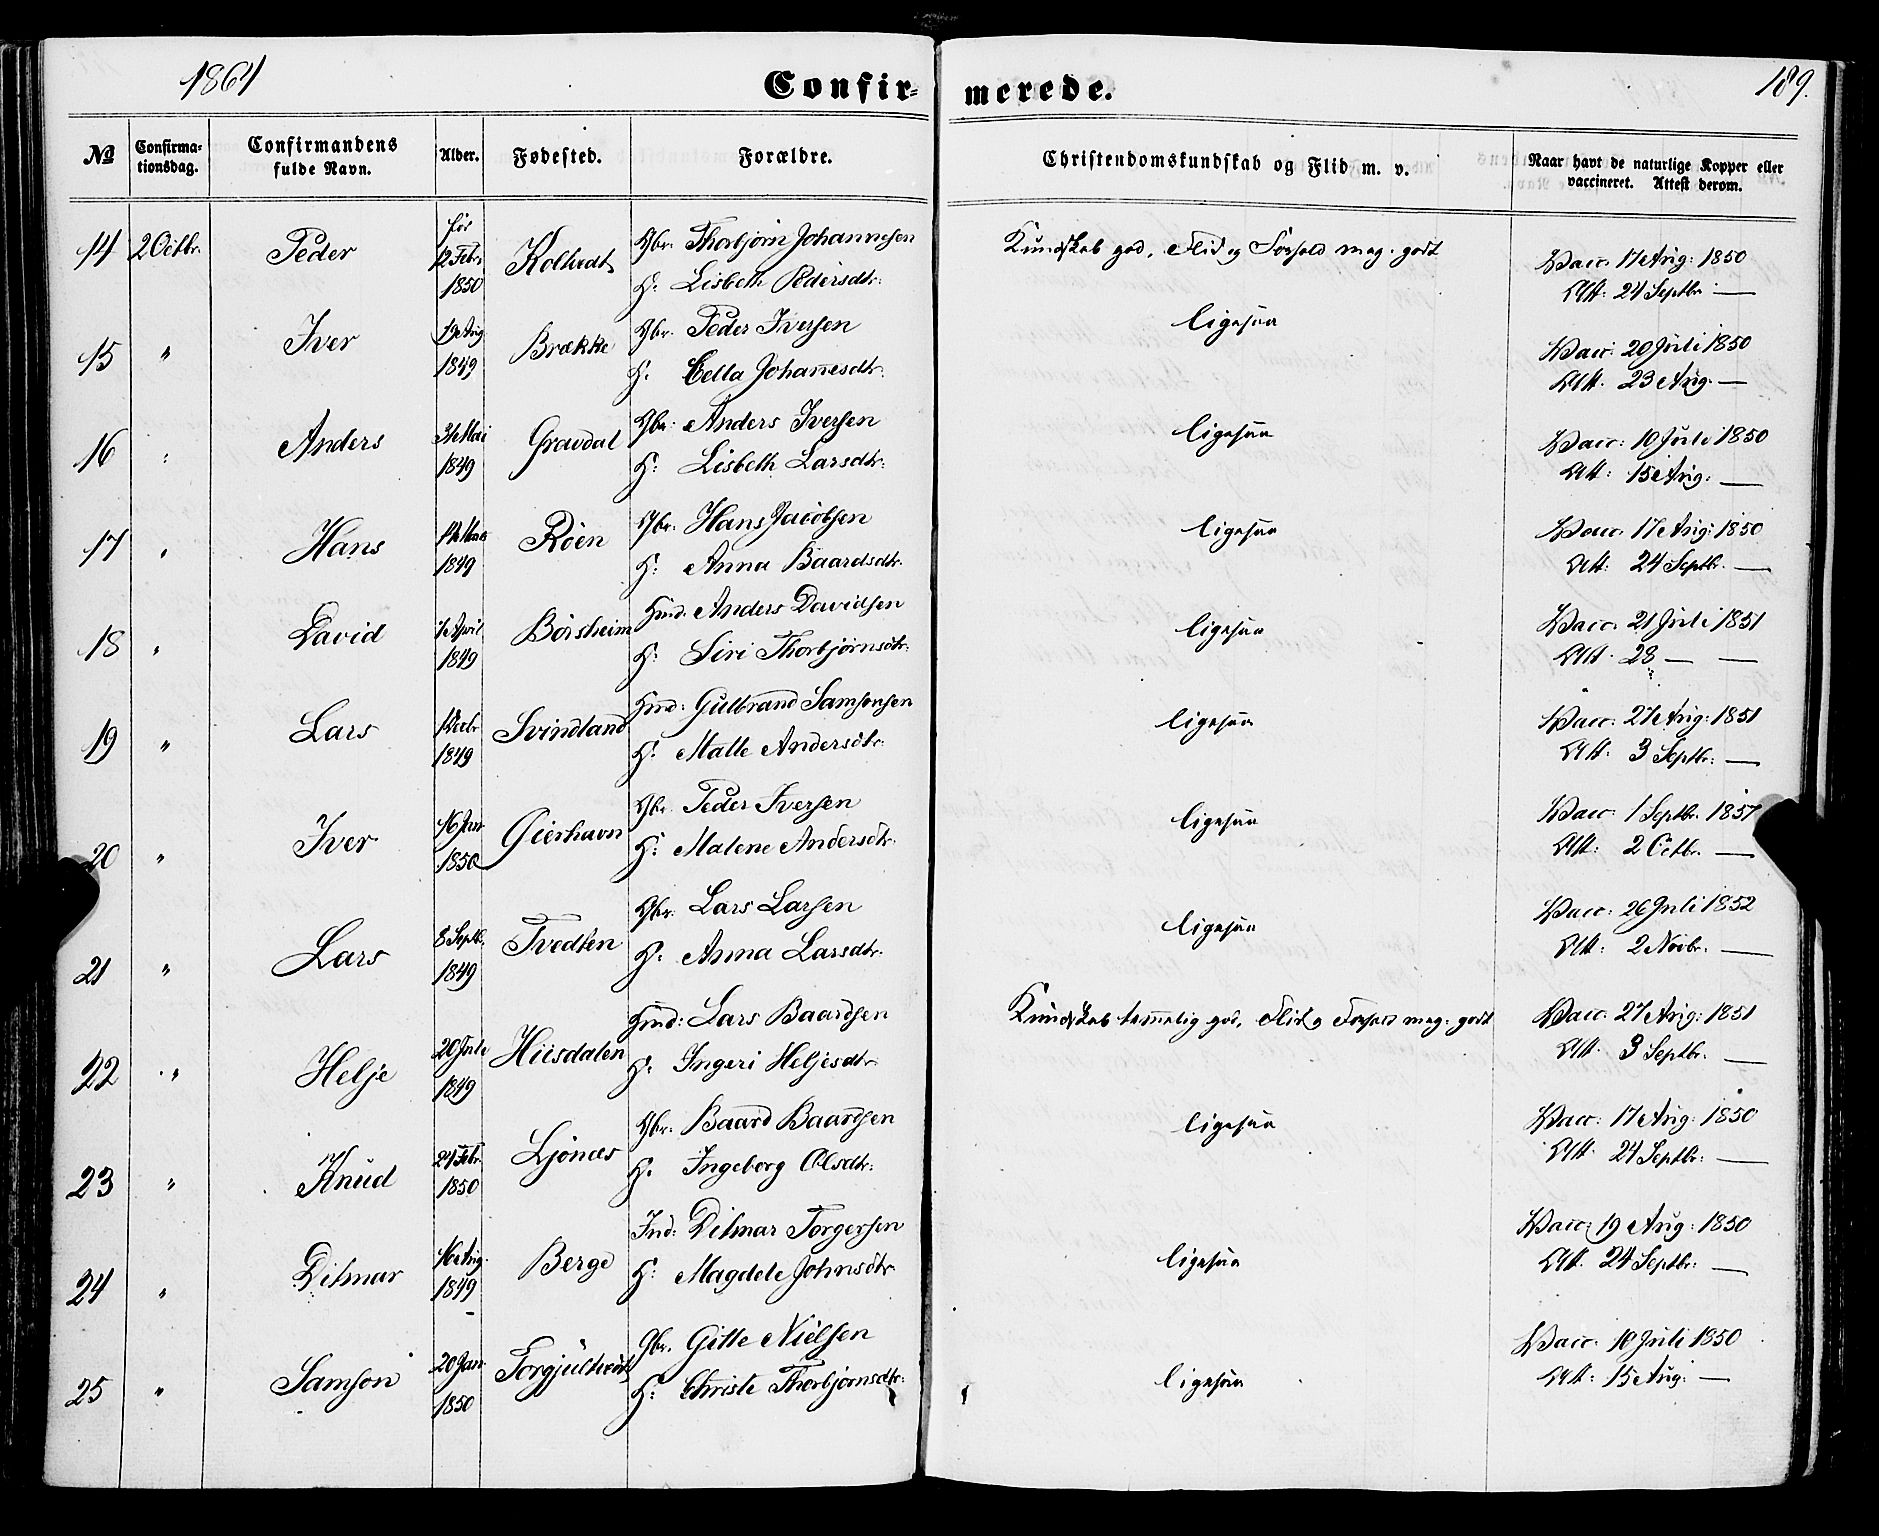 1864
Confir-
merede.
189.
No
Confirma-
tionsdag.
Confirmandens
fulde Navn.
Alder.
Fødested.
Forældre.
Christendomskundskab og Flid m. v.
Naar havt de naturlige Kopper eller
vaccineret. Attest derom.
14 2 Octbr. Peder 12 Febr Koltvedt Gbr. Thorbjörn Johannesen Kundskab god, Flid og Forhold meg. godt Vacc. 17 Aug: 1850
1850 H. Lisbeth Pedersdtr. Att: 24 Septbr: —
15 " Iver Aug Brække Gbr. Peder Iversen ligesaa Vacc: 20 Juli 1850
1849 H. Cella Johanesdtr. Att. 23 Aug. —
16 : Anders Mai Gravdal Gbr. Anders Iversen ligesaa Vacc: 10 Juli 1850
1849 H: Lisbeth Larsdtr. Att: 15 Aug: —
17 " Hans Röen Gbr. Hans Jacobsen ligesaa Vacc. 17 Aug: 1850
1849 H: Anna Baardsdtr. Att: 24 Septbr. —
18 " David April Börsheim Hmd. Anders Davidsen ligesaa Vacc. 21 Juli 1851
1849 H: Siri Thorbjørnsdtr. Att. 28 — —
19 " Lars Svindland Hmd: Gulbrand Samsonsen ligesaa Vacc: 27 Aug: 1851
1849 H. Malle Andersdtr. Att. 3 Septbr: —
20 " Iver 16 Jan Gierhavn Gbr. Peder Iversen ligesaa Vacc. 1 Septbr. 1851
1850 H: Malene Andersdtr. Att: 2 Octbr. —
21 " Lars 8 Septb. Tvedten Gbr. Lars Larsen ligesaa Vacc: 26 Juli 1852
1849 H. Anna Larsdtr. Att: 2 Novbr. —
22 " Helje 20 Juli Huusdalen Hmd: Lars Baardsen Kundskab temmelig god, Flid og Forhold meg. godt Vacc. 27 Aug: 1851
1849 H. Ingeri Heljesdtr Att. 3 Septbr. —
23 " Knud 24 Febr. Ljönæs Gbr. Baard Baardsen ligesaa Vacc: 17 Aug: 1850
1850 H. Ingeborg Olsdtr: Att. 24 Septbr: —
24 " Ditmar 16 Aug. Berge Ind: Ditmar Torgersen ligesaa Vacc: 19 Aug: 1850
1849 H: Magdele Johnsdtr Att. 24 Septbr: —
25 " Samson 20 Jan. Torgjultvedt Gbr. Gitte Nielsen ligesaa Vacc. 10 Juli 1850
1850 H: Christe Thorbjørnsdtr: Att: 15 Aug: —